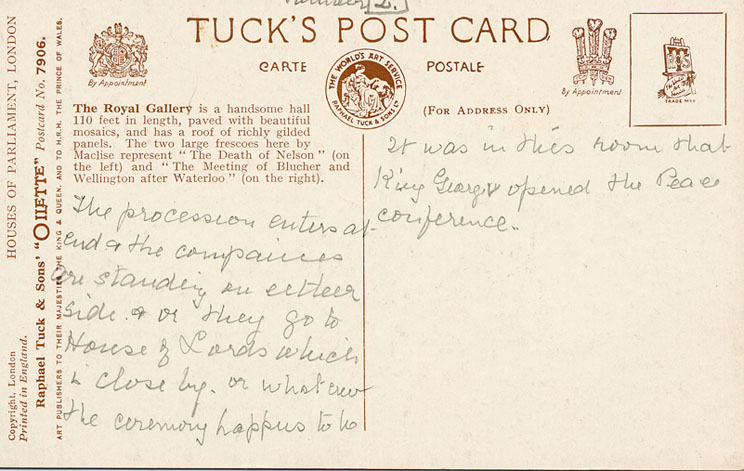 Number 2.
TUCK'S POST CARD
CARTE POSTALE
By Appointment
THE WORLD'S ART SERVICE
RAPHAEL TUCK & SONS LD
By Appointment
TRADE MARK
(FOR ADDRESS ONLY)
HOUSES OF PARLIAMENT, LONDON
Raphael Tuck & Sons' "OILETTE" Postcard No. 7906.
ART PUBLISHERS TO THEIR MAJESTIES THE KING & QUEEN, AND TO H.R.H. THE PRINCE OF WALES.
Copyright, London
Printed in England.
The Royal Gallery is a handsome hall
110 feet in length, paved with beautiful
mosaics, and has a roof of richly gilded
panels. The two large frescoes here by
Maclise represent "The Death of Nelson" (on
the left) and "The Meeting of Blucher and
Wellington after Waterloo" (on the right).
The procession enters at
end & the companies
are standing on either
side. & or they go to
House of Lords which
is close by. or what ever
the ceremony happens to be
It was in this room that
King George V opened the Peace
conference.